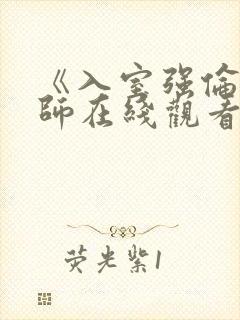 《入室强倫
師在綫觀看
荧光紫1